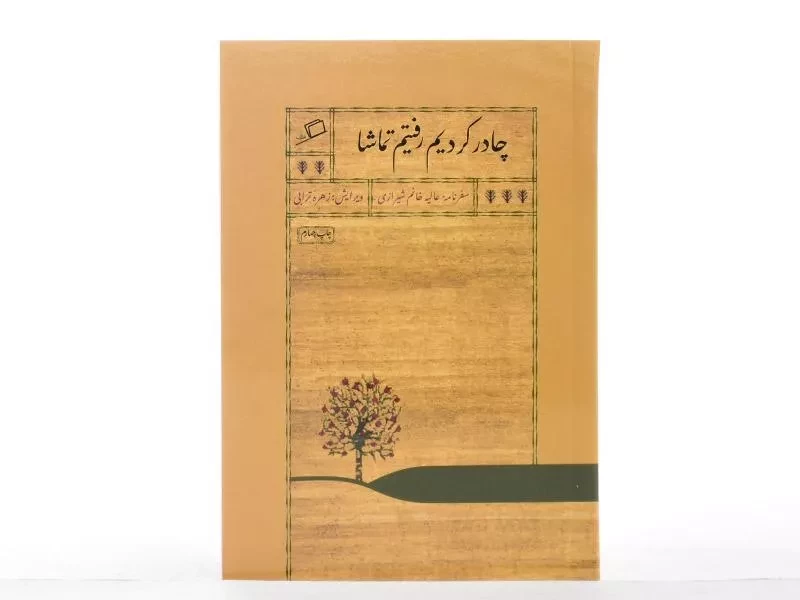 چادر کردیم رفتیم تماشا
سفرنامهٔ عالیه خانم شیرازی
ویرایش: زهره ترابی
چاپ چهارم